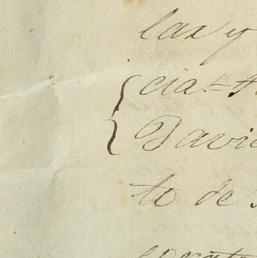 lar y
cia =
David
to de